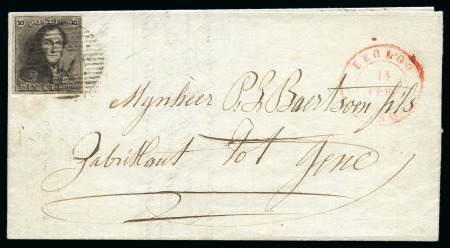 10 POSTES 10
DIX CENT
EECLOO
11
FEVR
Mynheer P. L. Baertsoen fils
Fabrikant tot Gend